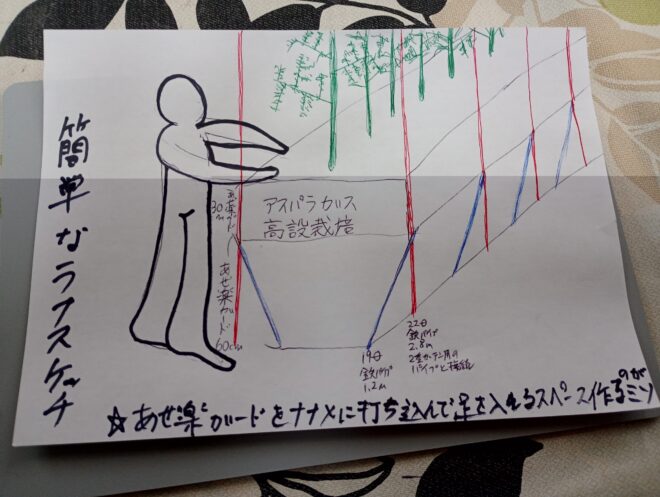 簡単なラフスケッチ
アスパラガス
高設栽培
あぜ楽ガード
30cm
あぜ楽ガード
60cm
19φ
鉄パイプ
1.2m
22φ
鉄パイプ
2.8m
パイプと接続
☆あぜ楽ガードをナナメに打ち込んで足を入れるスペース作るのがミソ